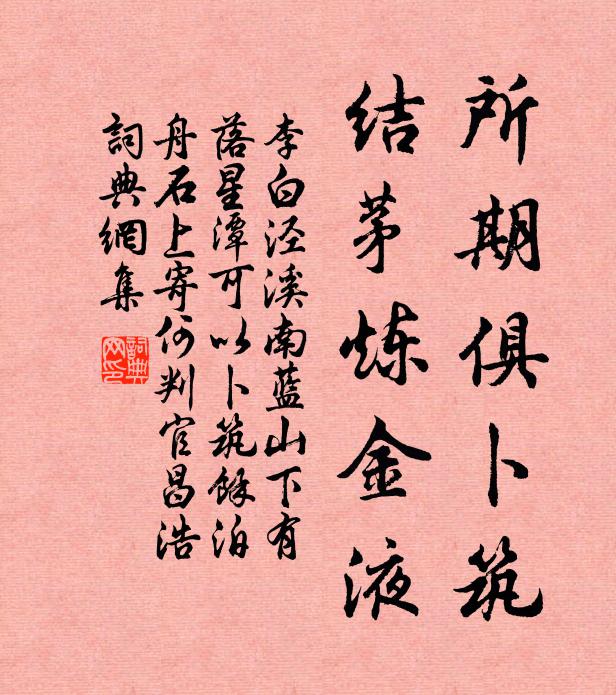 所期俱卜筑
结茅炼金液
李白泾溪南蓝山下有
落星潭可以卜筑余泊
舟石上寄何判官昌浩
詞典網集
詞典网印